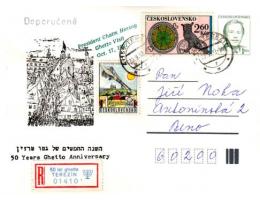 Doporučeně
President Chaim Herzog
Ghetto Visit
Oct. 17,
ČESKOSLOVENSKO
2.60
ČESKOSLOVENSKO
Pan
Jiří Noha
Antonínská 2
Brno
60200
השנה החמישים של גטו טרזין
50 Years Ghetto Anniversary
R
50 let ghetta
TEREZÍN
01410